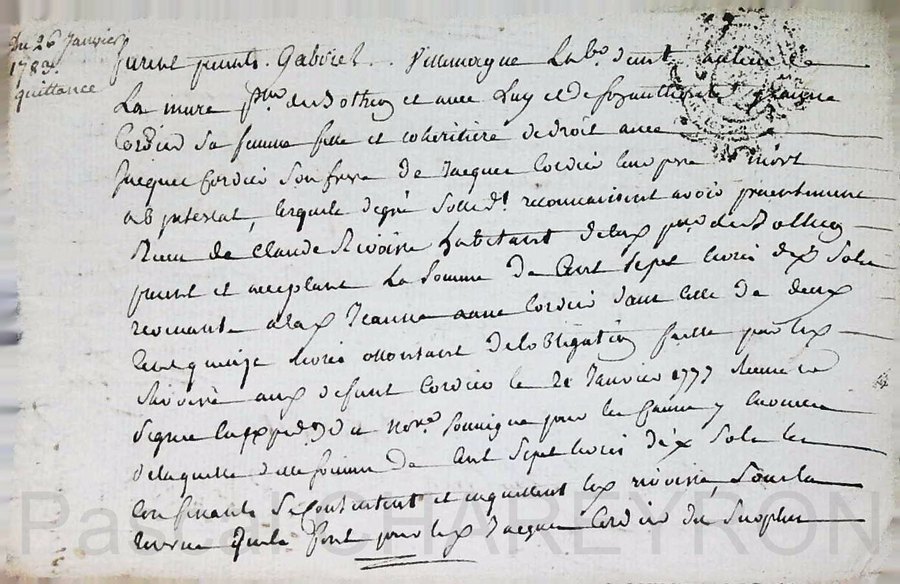 Du 26 Janvier
1783.
quittance
furent presents Gabriel Villemagne Labr dud. lieu de
La mure psse du Bothieu et avec Luy et de son autthorité Jeanne
Cordier sa femme fille et coheritiere de droit avec
Jacques Cordier son frere de Jacques Cordier leur pere mort
ab intestat, lesquels de gré solld.t reconnaissent avoir presentement
Receu de Claude Rivoire habitant de lad. psse du Bothieu
present et acceptant La somme de Cent sept Livres dix Sols
revenante a lad. Jeanne Cordier dans celle de deux
cent quinze Livres montant de l'obligation faitte par led.
Rivoire aud. defunt Cordier le 21 Janvier 1777
signée
de laquelle ditte somme de Cent Sept Livres dix Sols les
confessants se contentent et en quittent led. Rivoire, sous la
reserve que font pour led. Jacques Cordier du surplus
Pascal CHAREYRON